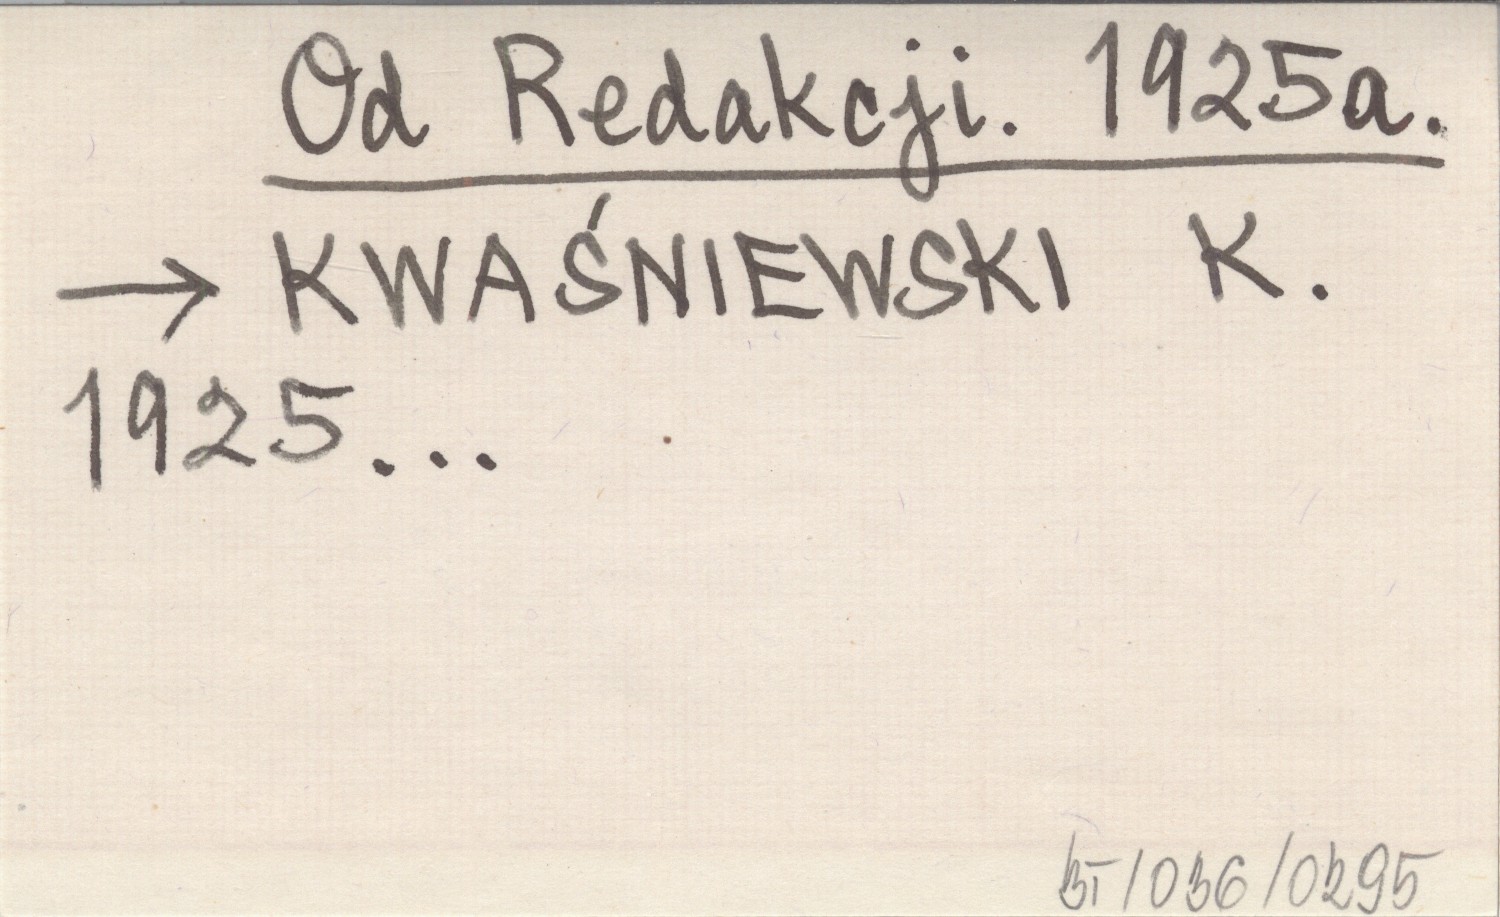 Od Redakcji. 1925a.
→ KWAŚNIEWSKI K.
1925...
/036/0295